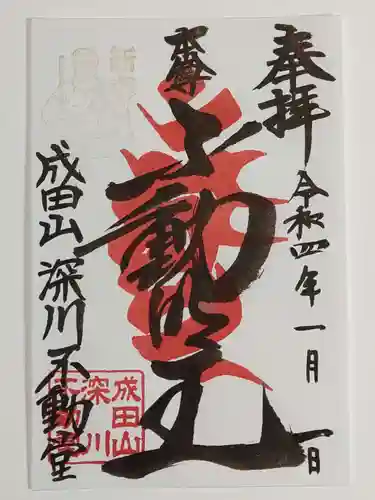 奉拝
令和四年一月一日
本尊
不動明王
成田山深川不動堂
成田山
深川